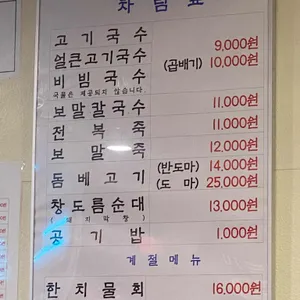 차림표
고기국수 9,000원
얼큰고기국수 (곱배기) 10,000원
비빔국수
국물은 제공되지 않습니다.
보말칼국수 11,000원
전복죽 11,000원
보말죽 12,000원
돔베고기 (반도마) 14,000원
(도마) 25,000원
창도름순대 13,000원
(돼지막창)
공기밥 1,000원
계절메뉴
한치물회 16,000원